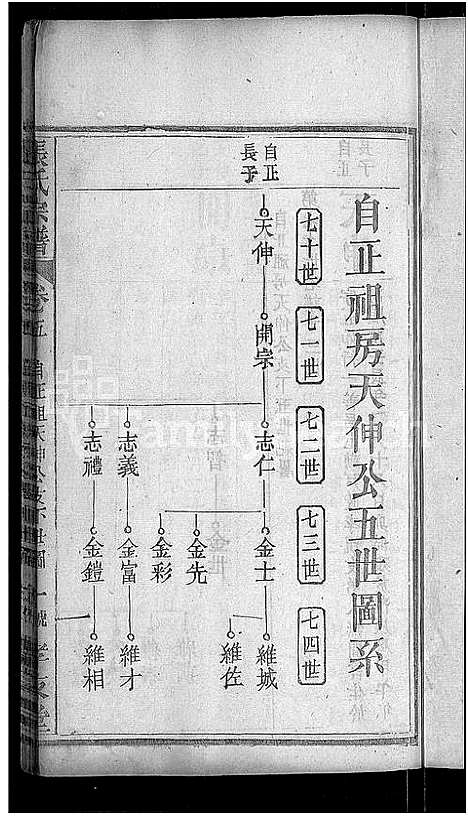 自正祖房天伸公五世圖系
七十世
七一世
七二世
七三世
七四世
自正
長子
天伸
開宗
志仁
志義
志禮
金士
金先
金彩
金富
金鎧
維城
維佐
維才
維相
張氏宗譜
卷五
自正祖天伸公
世圖
一號